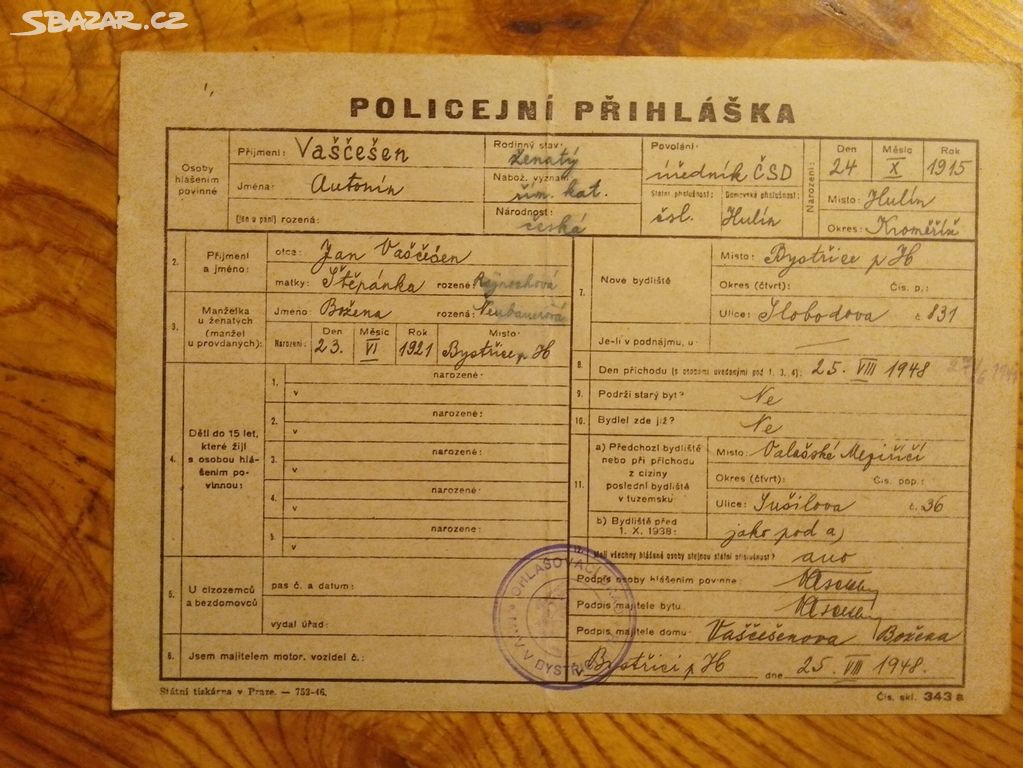 SBAZAR.CZ
POLICEJNÍ PŘIHLÁŠKA
Osoby hlášením povinné
Příjmení: Vaščešen
Jméno: Antonín
(žen a paní) rozená:
Rodinný stav: ženatý
Nábož. vyznání řím. kat.
Národnost: česká
Povolání: úředník ČSD
Státní příslušnost: čsl.
Domovská příslušnost: Hulín
Narození:
Den 24 Měsíc X Rok 1915
Místo: Hulín
Okres: Kroměříž
2. Příjmení a jméno:
otce: Jan Vaščešen
matky: Štěpánka rozené:
3. Manželka u ženatých (manžel u provdaných):
Jméno Božena rozená: Neubauerová
Narození: Den 23. Měsíc VI Rok 1921 Místo: Bystřice p H
4. Děti do 15 let, které žijí s osobou hlášením povinnou:
1. narozené:
v
2. narozené:
v
3. narozené:
v
4. narozené:
v
5. narozené:
v
5. U cizozemců a bezdomovců
pas č. a datum:
vydal úřad:
6. Jsem majitelem motor. vozidel č.:
7. Nové bydliště
Místo: Bystřice p H
Okres (čtvrť): Čís. p.:
Ulice: Slobodova č. 831
Je-li v podnájmu, u
8. Den příchodu (s osobami uvedenými pod 1, 3, 4): 25. VIII 1948
9. Podrží starý byt? Ne
10. Bydlel zde již? Ne
11. a) Předchozí bydliště nebo při příchodu z ciziny poslední bydliště v tuzemsku
Místo: Valašské Meziříčí
Okres (čtvrť): Čís. pop.:
Ulice: Sušilova č. 36
b) Bydliště před 1. X. 1938: jako pod a)
Mají všechny hlášené osoby stejnou státní příslušnost? ano
Podpis osoby hlášením povinné:
Podpis majitele bytu:
Podpis majitele domu: Vaščešenova Božena
Bystřici p H dne 25. VIII 1948.
OHLAŠOVACÍ
V BYSTŘICI
Státní tiskárna v Praze. — 753-46.
Čís. skl. 343 a